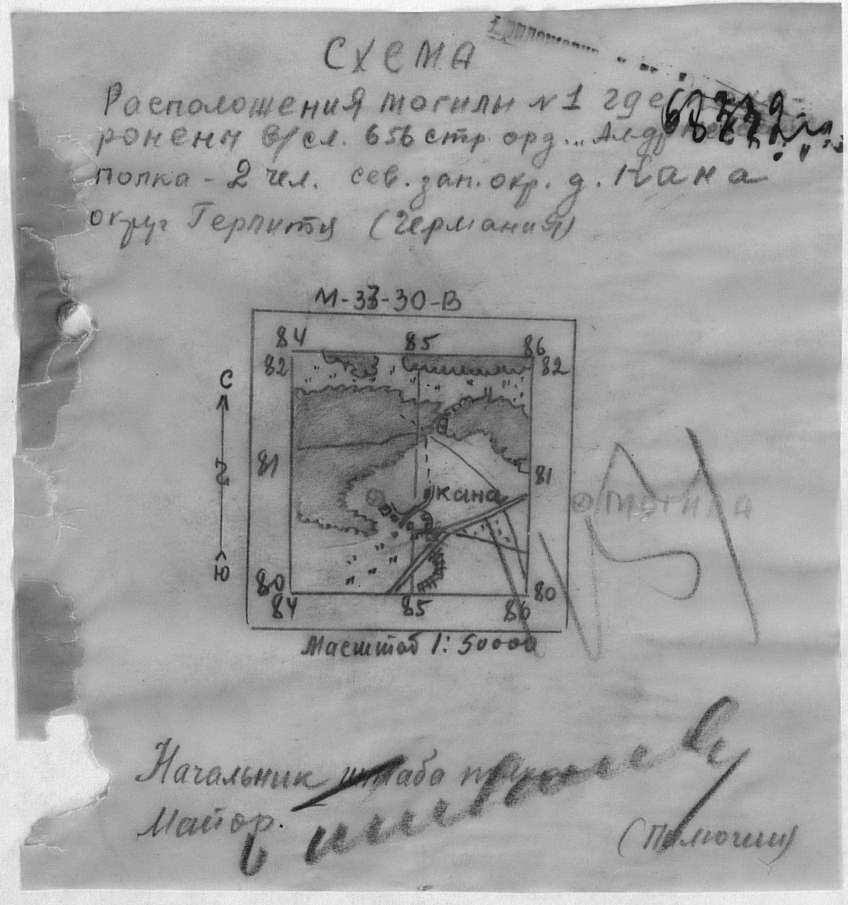 СХЕМА
Расположения могилы №1 где
ронены в/сл. 656 стр. орд.
полка - 2 чел. сев. зап. окр. д. Кана
округ Герлитц (Германия)
М-33-30-В
84 85 86
82 82
С
81 81
Кана
Могила
Ю
80 80
84 85 86
Масштаб 1:50000
Начальник штаба полка
Майор.